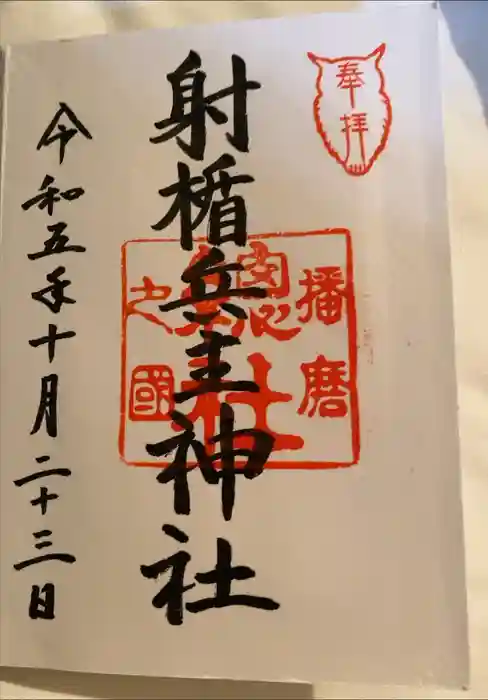 奉拝
射楯兵主神社
播磨
総社
之國
令和五年十月二十三日